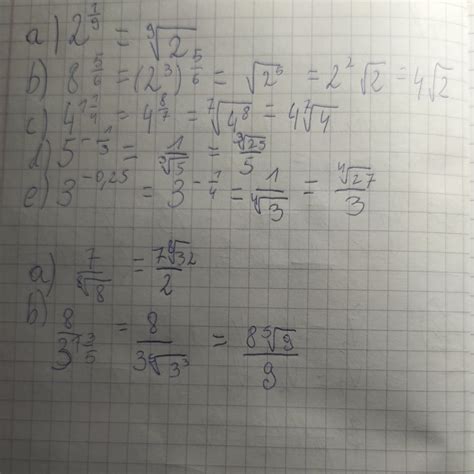 a) 2^{1/9} = ⁹√2
b) 8^{5/6} = (2³)^{5/6} = √2⁵ = 2²√2 = 4√2
c) 4^{1 1/7} = 4^{8/7} = ⁷√4⁸ = 4 ⁷√4
d) 5^{-1/3} = 1/³√5 = ³√25/5
e) 3^{-0,25} = 3^{-1/4} = 1/⁴√3 = ⁴√27/3
a) = 2
b) 8 = 8 = 8 ⁵√9 / 9